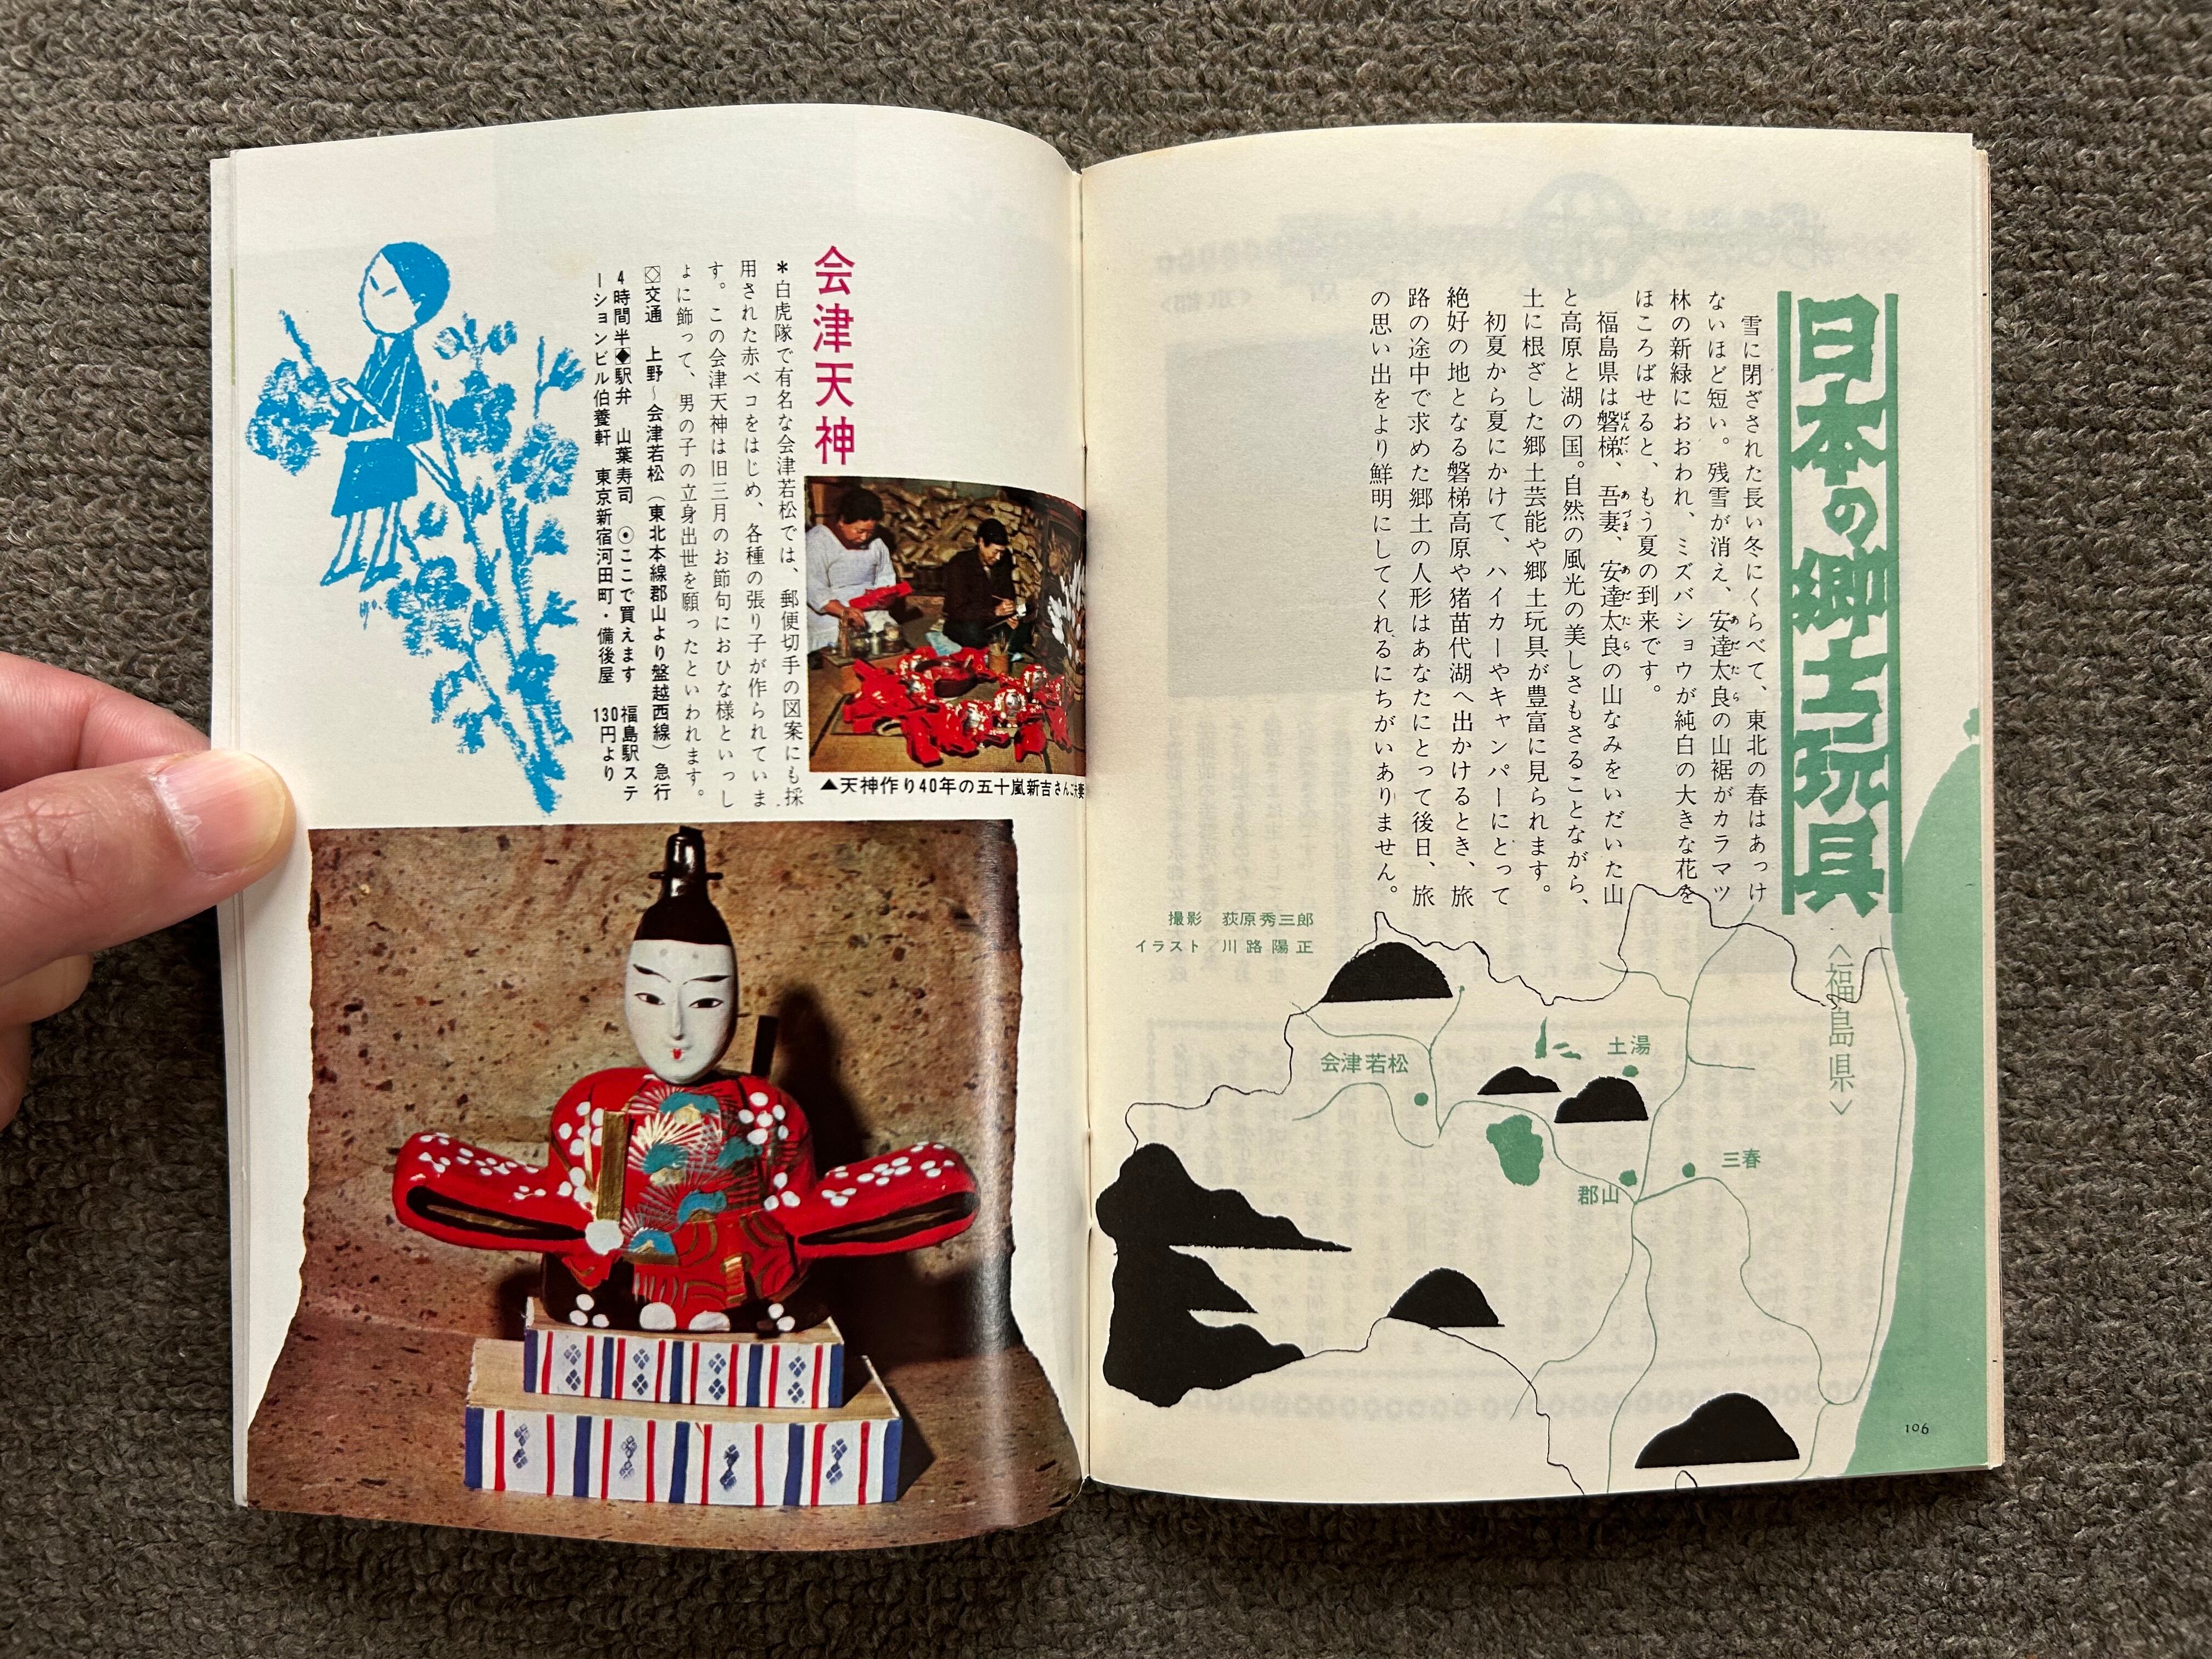 日本の郷土玩具
〈福島県〉
雪に閉ざされた長い冬にくらべて、東北の春はあっけ
ないほど短い。残雪が消え、安達太良の山裾がカラマツ
あだたら
林の新緑におおわれ、ミズバショウが純白の大きな花を
ほころばせると、もう夏の到来です。
福島県は磐梯、吾妻、安達太良の山なみをいだいた山
ばんだい あづま あだたら
と高原と湖の国。自然の風光の美しさもさることながら、
土に根ざした郷土芸能や郷土玩具が豊富に見られます。
初夏から夏にかけて、ハイカーやキャンパーにとって
絶好の地となる磐梯高原や猪苗代湖へ出かけるとき、旅
路の途中で求めた郷土の人形はあなたにとって後日、旅
の思い出をより鮮明にしてくれるにちがいありません。
撮影 荻原秀三郎
イラスト 川路陽正
会津若松
土湯
三春
郡山
106
会津天神
＊白虎隊で有名な会津若松では、郵便切手の図案にも採
用された赤ベコをはじめ、各種の張り子が作られていま
す。この会津天神は旧三月のお節句におひな様といっし
ょに飾って、男の子の立身出世を願ったといわれます。
◇交通 上野～会津若松（東北本線郡山より盤越西線）急行
4時間半◆駅弁 山葉寿司 ⊙ここで買えます 福島駅ステ
ーションビル伯養軒 東京新宿河田町・備後屋 130円より
▲天神作り40年の五十嵐新吉さんご夫妻